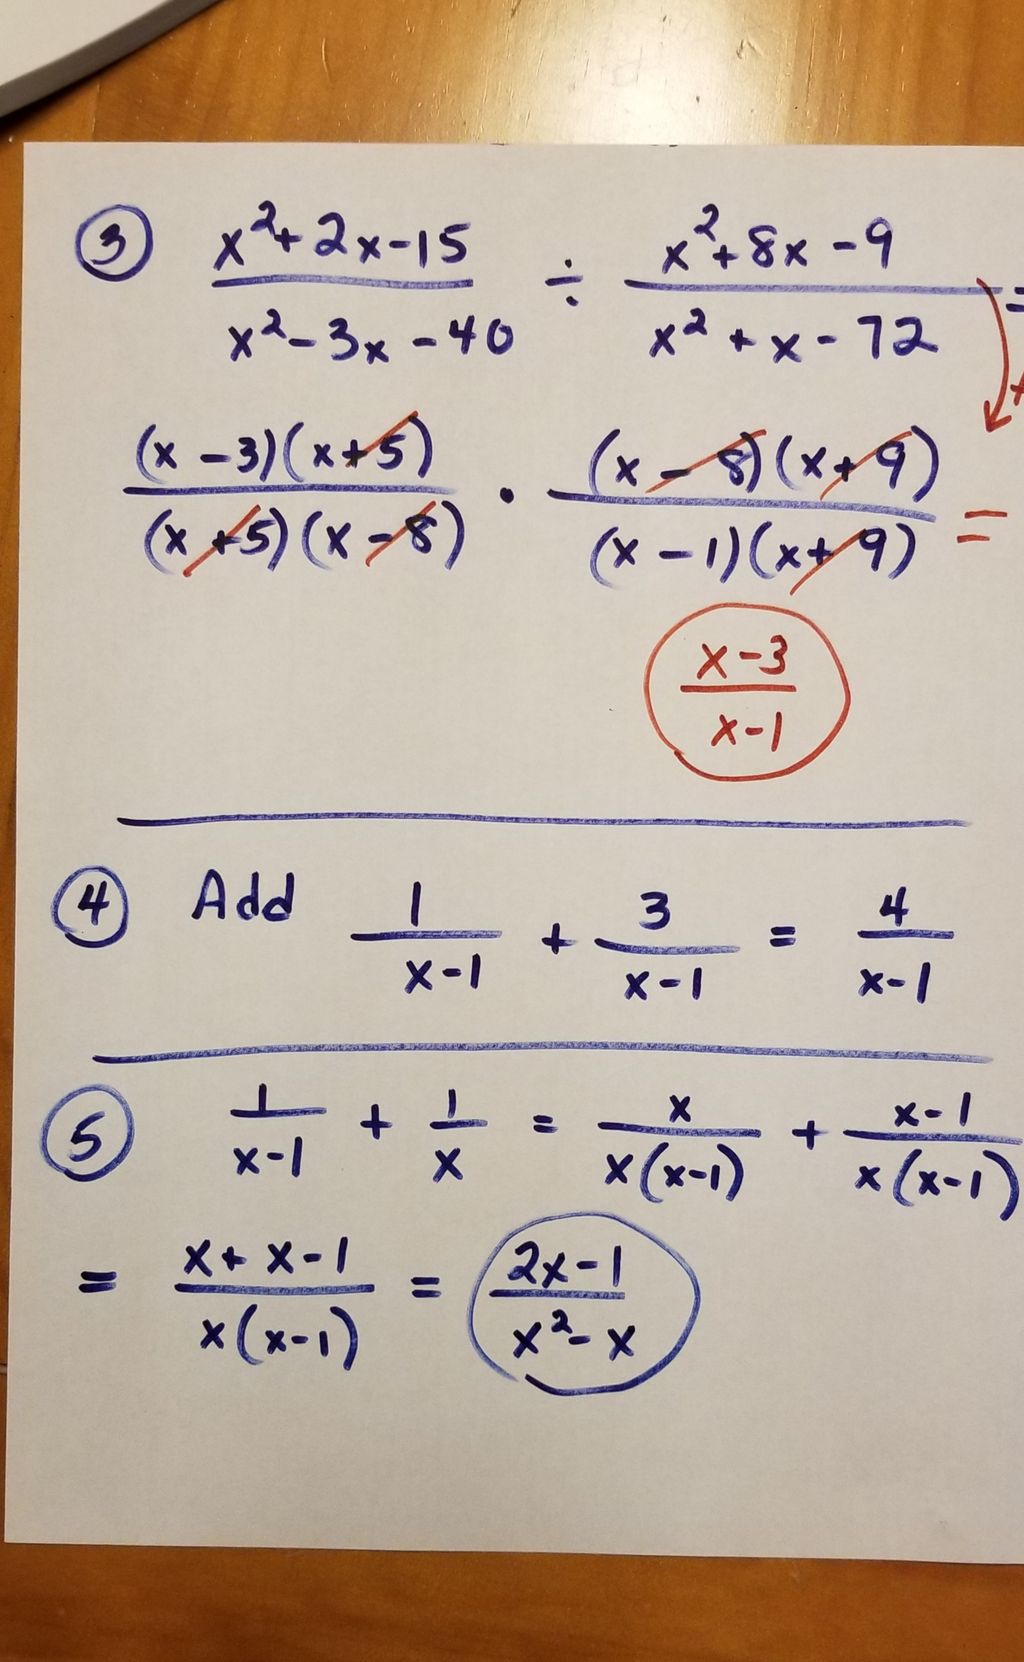 ③ x²+2x-15 / x²-3x-40 ÷ x²+8x-9 / x²+x-72 =
(x-3)(x+5) / (x+5)(x-8) · (x-8)(x+9) / (x-1)(x+9) =
x-3 / x-1
④ Add 1 / x-1 + 3 / x-1 = 4 / x-1
⑤ 1 / x-1 + 1 / x = x / x(x-1) + x-1 / x(x-1)
= x+x-1 / x(x-1) = 2x-1 / x²-x